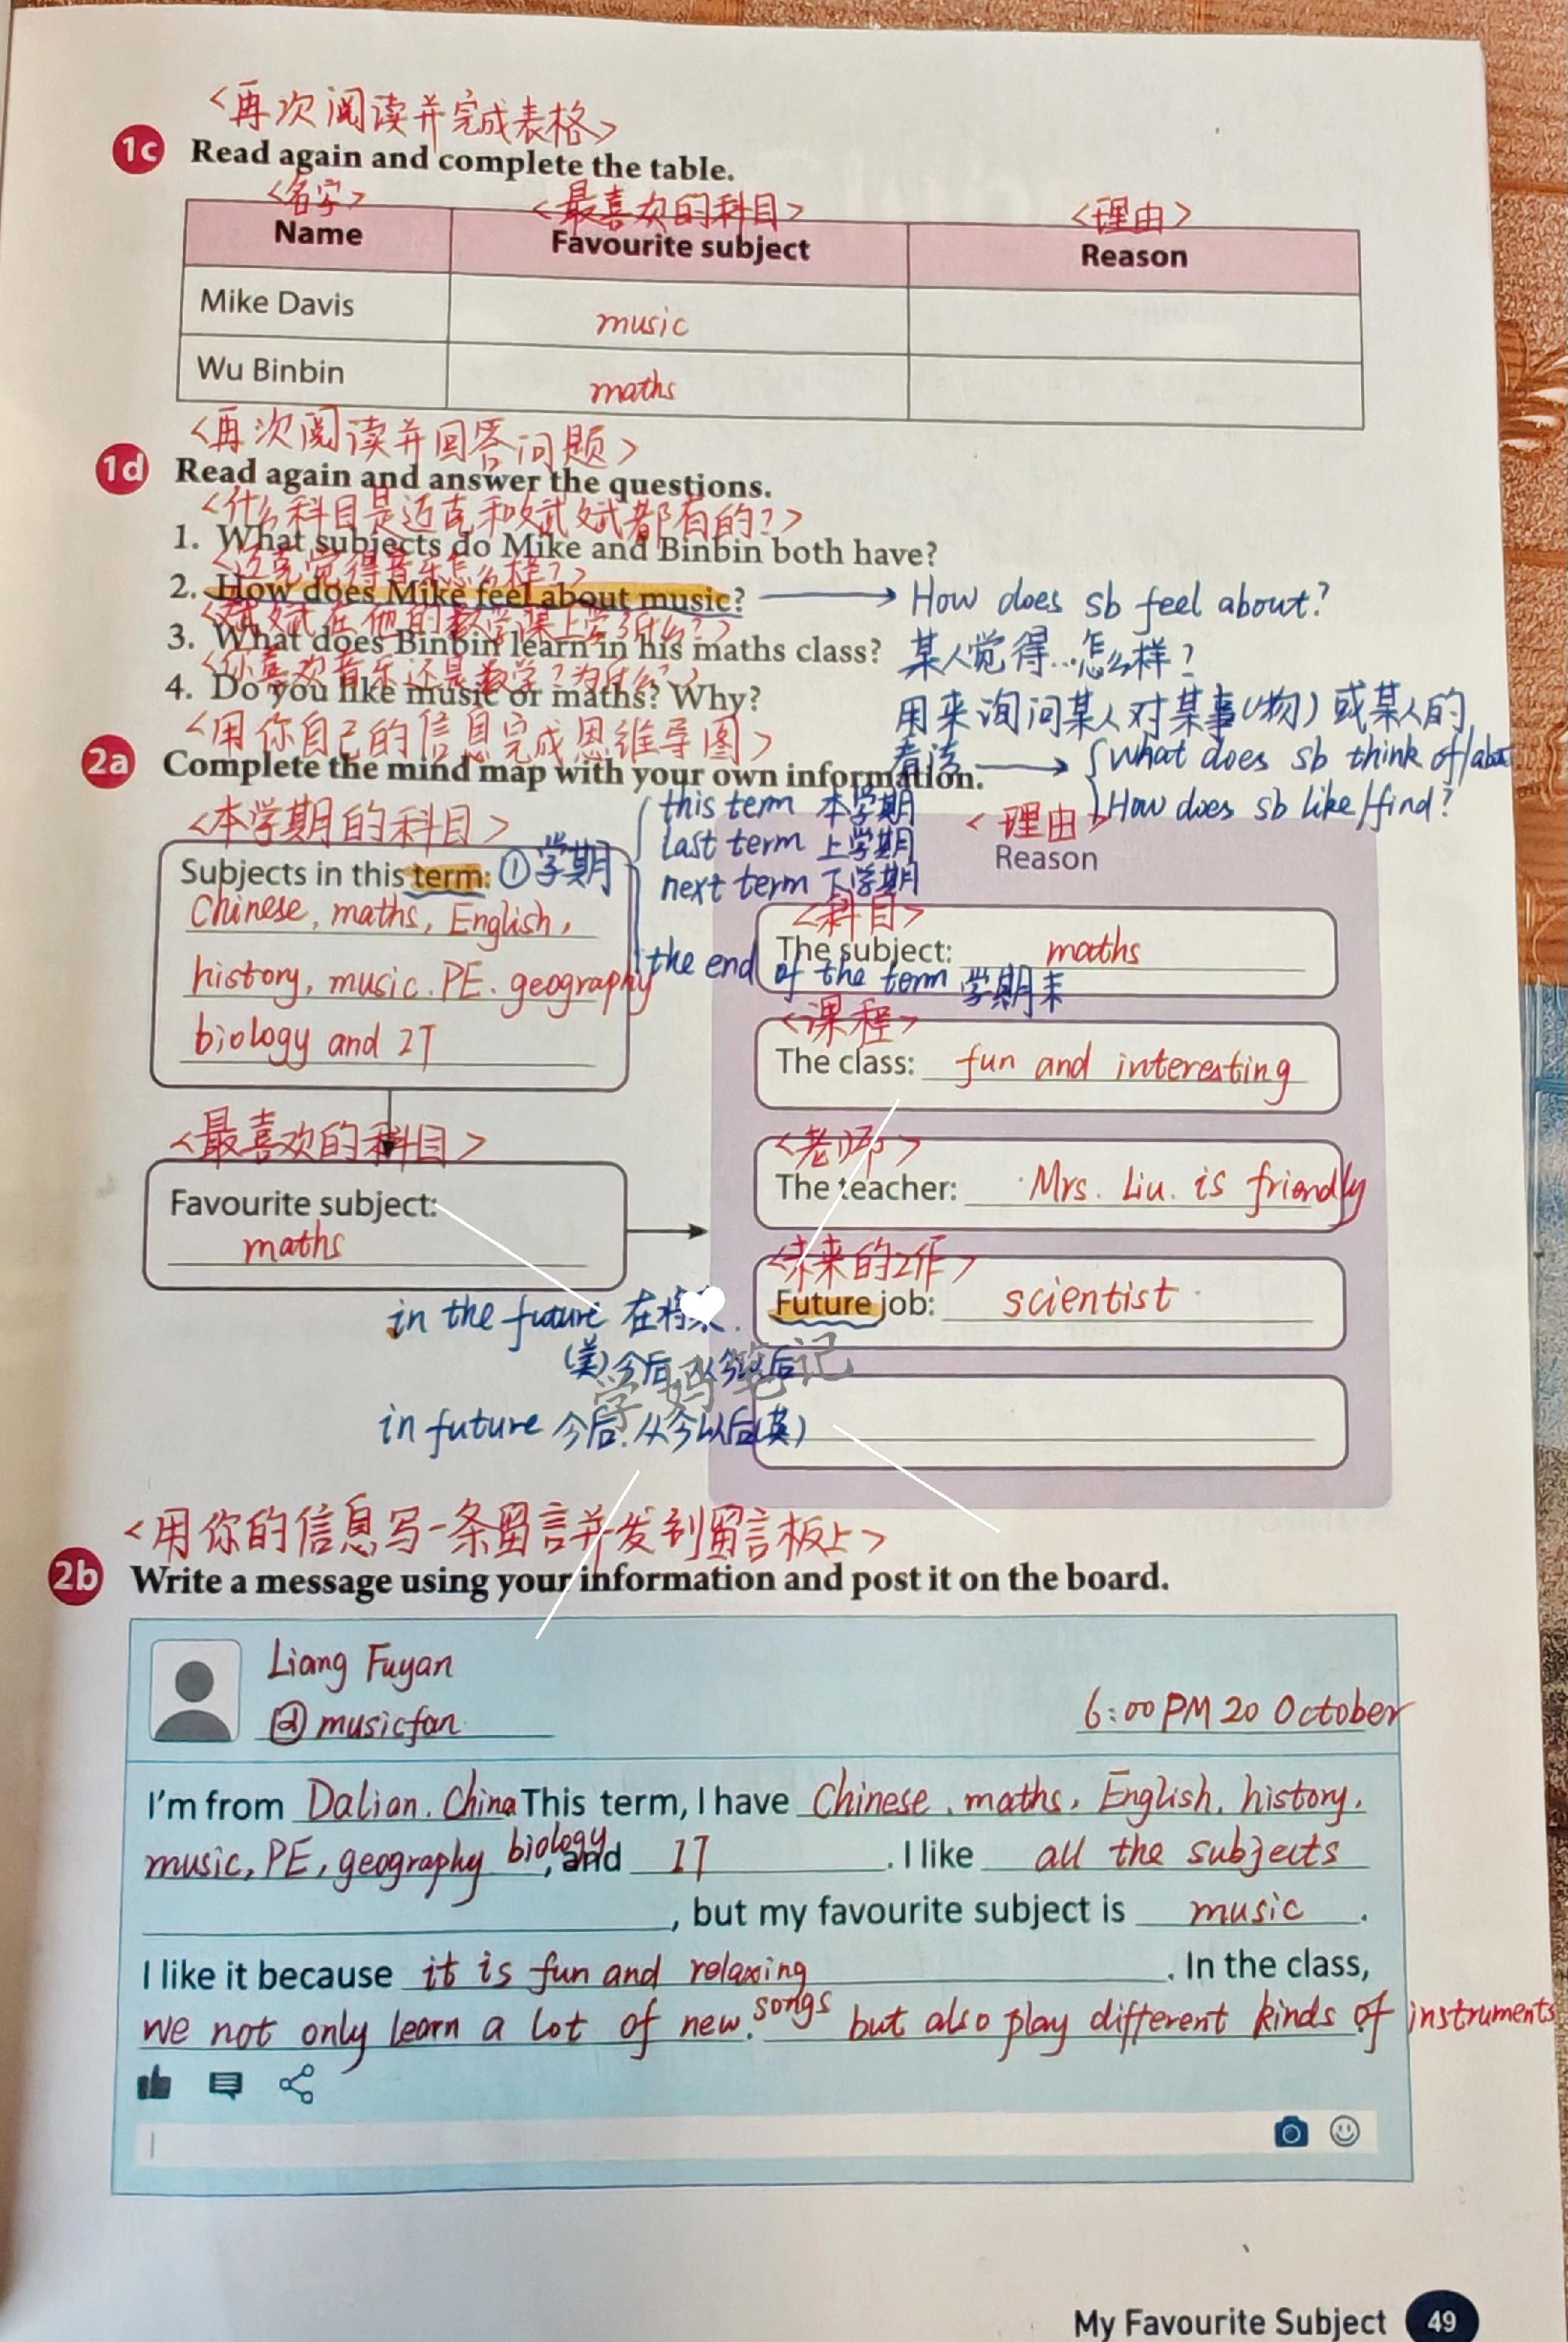 <再次阅读并完成表格>
1c Read again and complete the table.
<名字> <最喜欢的科目> <理由>
Name Favourite subject Reason
Mike Davis music
Wu Binbin maths
<再次阅读并回答问题>
1d Read again and answer the questions.
<什么科目是迈克和斌斌都有的?>
1. What subjects do Mike and Binbin both have?
<迈克觉得音乐怎么样?>
2. How does Mike feel about music? → How does sb feel about?
<斌斌在他的数学课上学了什么?>
3. What does Binbin learn in his maths class? 某人觉得...怎么样?
<你喜欢音乐还是数学?为什么?>
4. Do you like music or maths? Why?
用来询问某人对某事(物)或某人的
看法 → What does sb think of/about
How does sb like/find?
<用你自己的信息完成思维导图>
2a Complete the mind map with your own information.
<本学期的科目>
Subjects in this term: ①学期
this term 本学期
last term 上学期
next term 下学期
the end of the term 学期末
Chinese, maths, English,
history, music. PE. geography
biology and IT
<最喜欢的科目>
Favourite subject:
maths
<理由>
Reason
<科目>
The subject: maths
<课程>
The class: fun and interesting
<老师>
The teacher: Mrs. Liu. is friendly
<未来的工作>
Future job: scientist
in the future 在将来.
(美)今后,从今以后
in future 今后.从今以后(英)
学妈笔记
<用你的信息写一条留言并发到留言板上>
2b Write a message using your information and post it on the board.
Liang Fuyan
@musicfan
6:00 PM 20 October
I'm from Dalian. China This term, I have Chinese, maths, English, history,
music, PE, geography biology, and IT. I like all the subjects
, but my favourite subject is music.
I like it because it is fun and relaxing. In the class,
we not only learn a lot of new songs but also play different kinds of instruments
My Favourite Subject 49